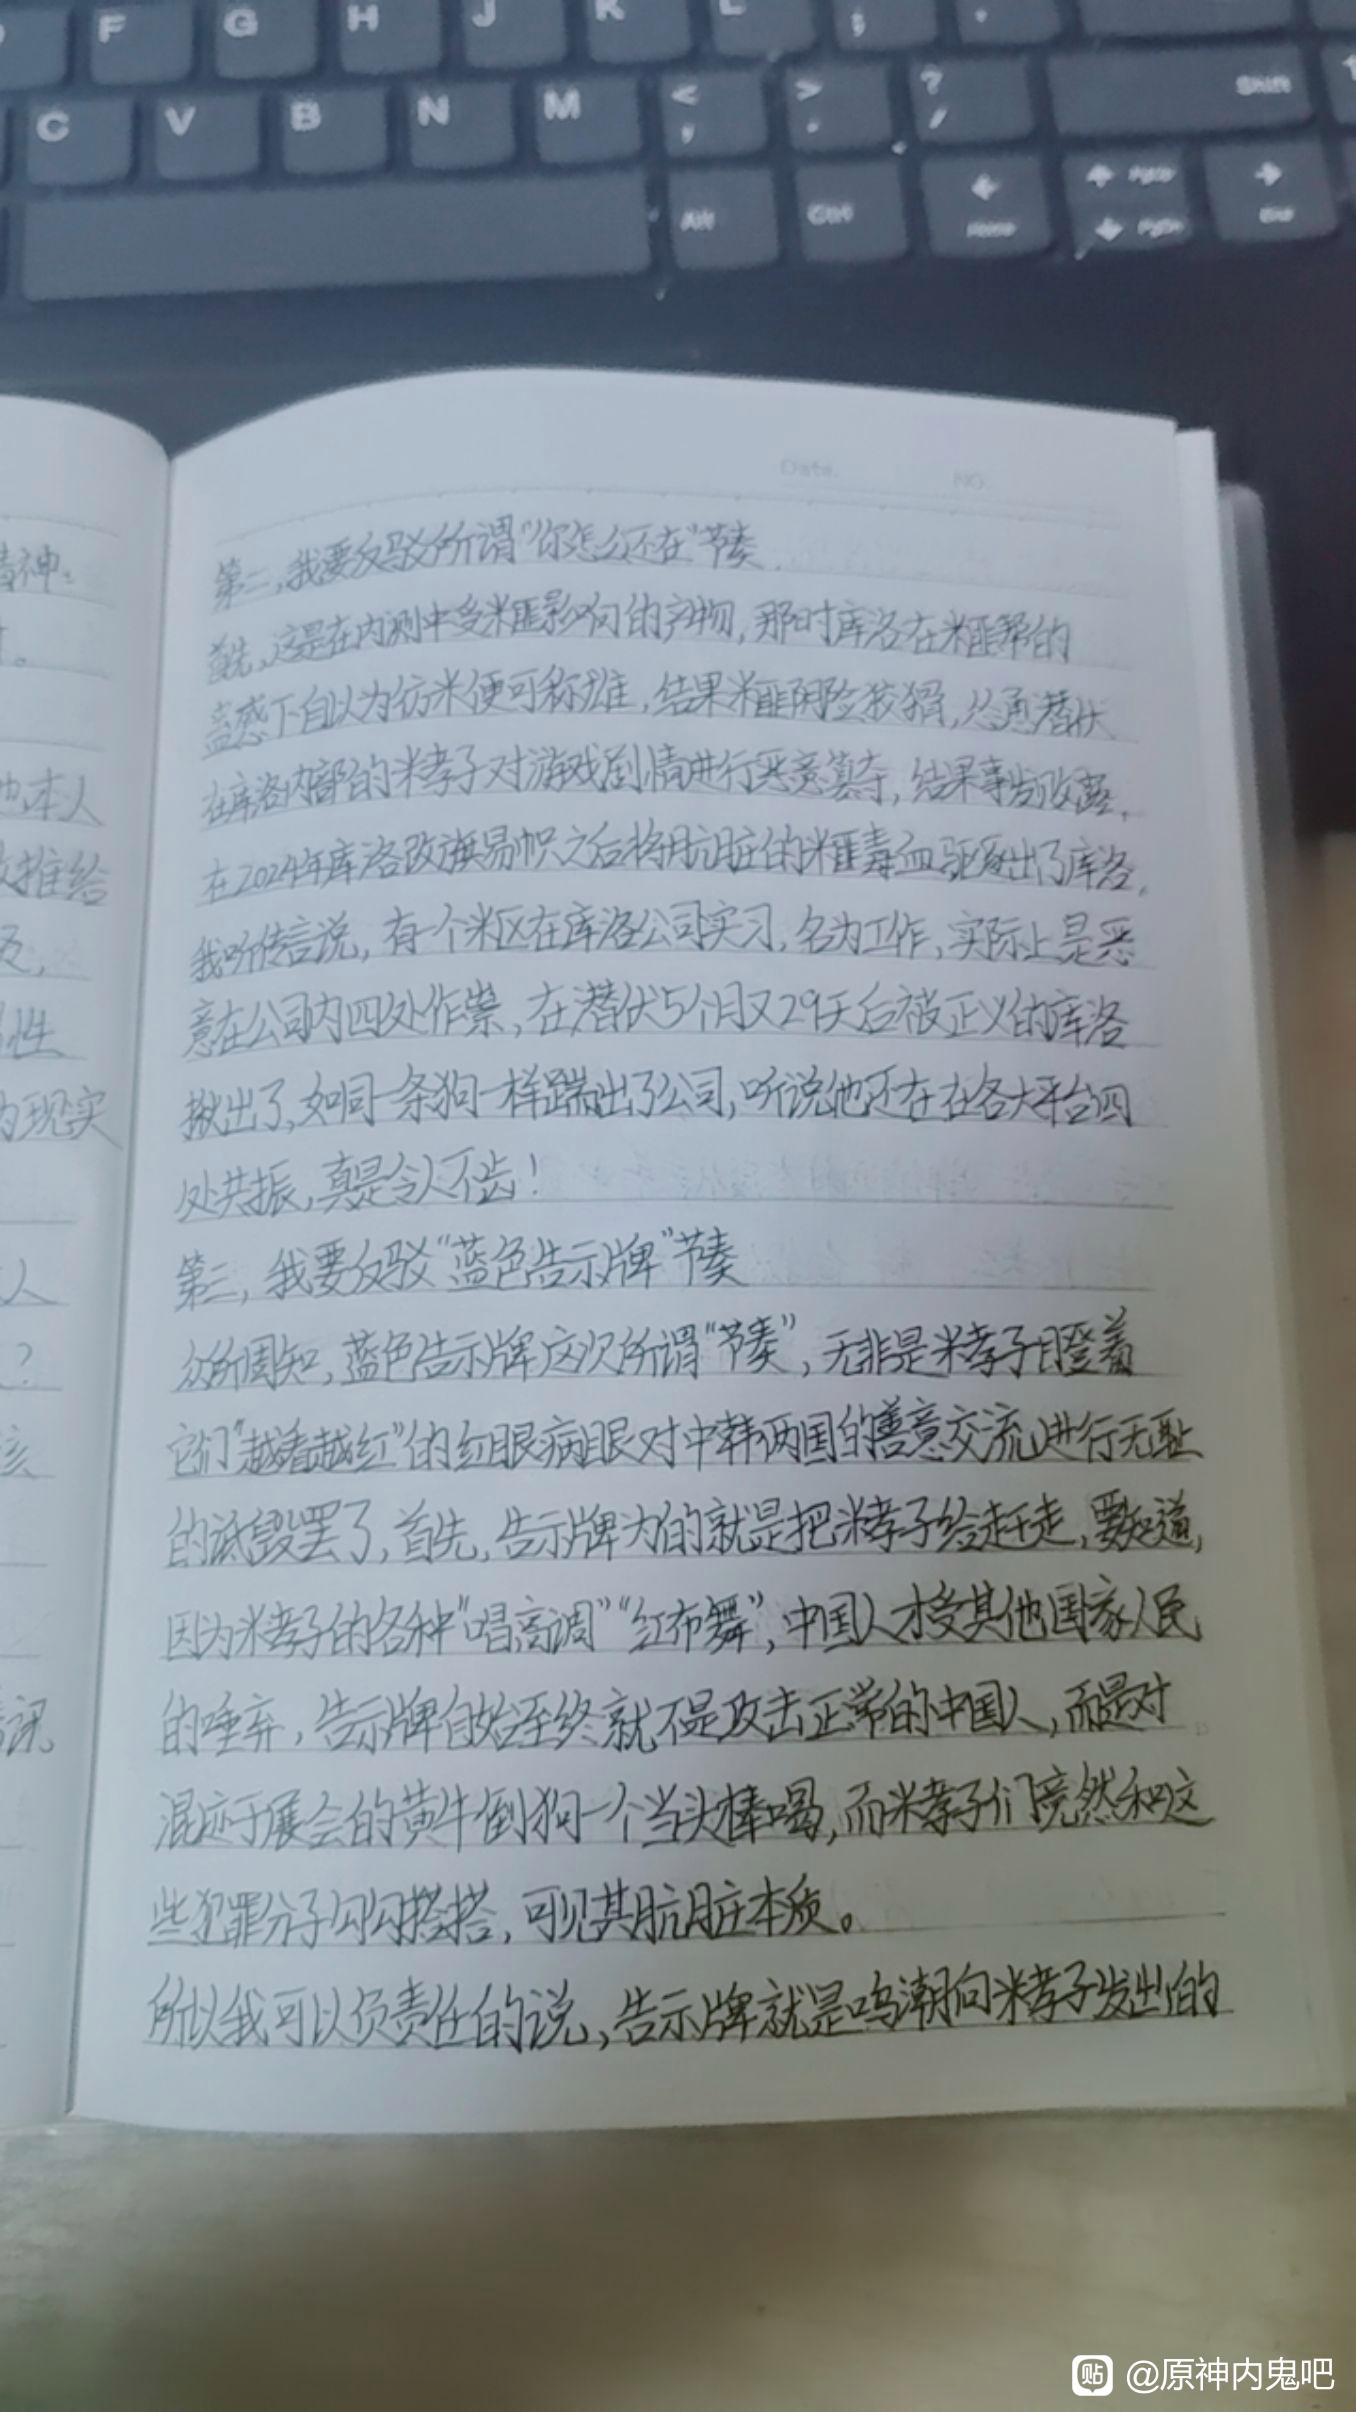 F G H J K L ;
C V B N M < , > . ? / Shift
Alt Ctrl Home PgUp PgDn End
Date. NO.
第二,我要反驳所谓“你怎么还在”节奏
首先,这是在内测中受米匪影响的产物,那时库洛在米匪帮的
蛊惑下自以为仿米便可称雄,结果米匪阴险狡猾,怂恿潜伏
在库洛内部的米孝子对游戏剧情进行恶意篡夺,结果事发败露,
在2024年库洛改旗易帜之后将肮脏的米匪毒血驱逐出了库洛,
我听传言说,有一个米区在库洛公司实习,名为工作,实际上是恶
意在公司内四处作祟,在潜伏5个月又29天后被正义的库洛
揪出了,如同一条狗一样踹出了公司,听说他还在在各大平台四
处共振,真是令人不齿!
第三,我要反驳“蓝色告示牌”节奏
众所周知,蓝色告示牌这次所谓“节奏”,无非是米孝子瞪着
它们“越看越红”的红眼病眼对中韩两国的善意交流进行无耻
的诋毁罢了,首先,告示牌为的就是把米孝子给赶走,要知道,
因为米孝子的各种“唱高调”“红布舞”,中国人才受其他国家人民
的唾弃,告示牌自始至终就不是攻击正常的中国人,而是对
混迹于展会的黄牛倒狗一个当头棒喝,而米孝子们竟然和这
些犯罪分子勾勾搭搭,可见其肮脏本质。
所以我可以负责任的说,告示牌就是鸣潮向米孝子发出的
精神:
他本人
推给
性
为现实
人
?
讯。
贴 @原神内鬼吧